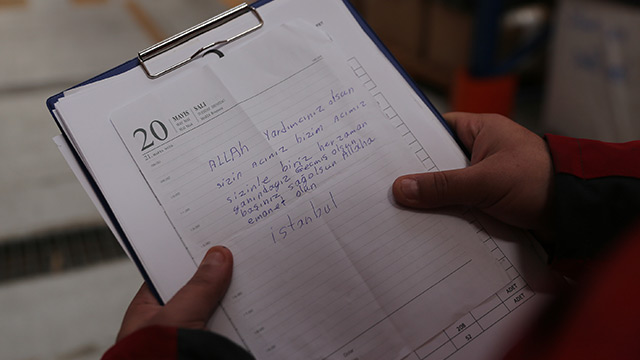 20
MAYIS
SALI
ALLAH yardımcınız olsun
sizin acınız bizim acımız
sizinle biriz herzaman
yanındayız Geçmiş olsun
başınız sağolsun Allaha
emanet olun
istanbul
208
ADET
52
ADET